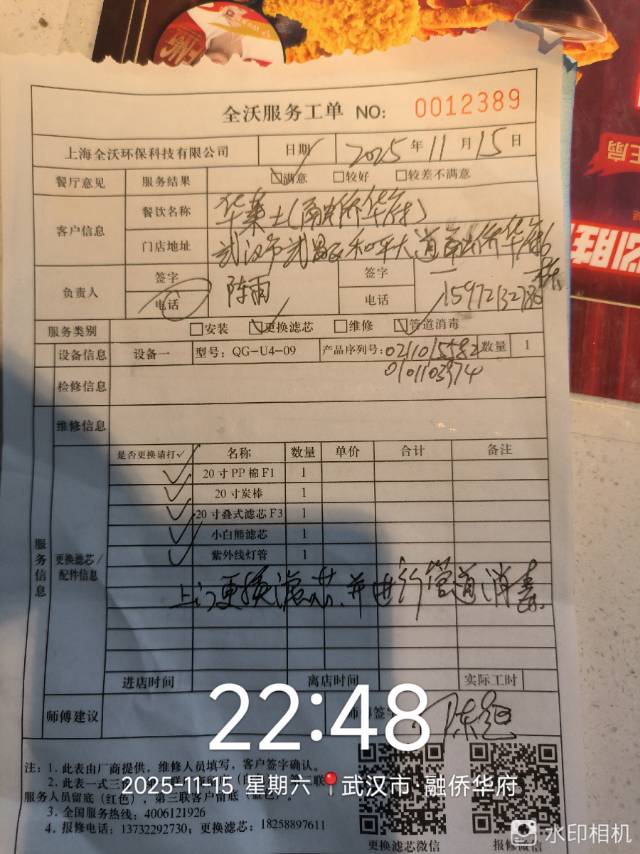 全沃服务工单 NO: 0012389
上海全沃环保科技有限公司 日期 2025年11月15日
餐厅意见 服务结果 ☑满意 □较好 □较差不满意
客户信息 餐饮名称 华莱士(融侨华府)
门店地址 武汉市武昌区和平大道融侨华府6栋
负责人 签字 陈雨 签字
电话 电话
服务类别 □安装 ☑更换滤芯 □维修 ☑管道消毒
设备信息 设备一 型号: QG-U4-09 产品序列号: 数量 1
检修信息
维修信息
服务信息 更换滤芯/配件信息
是否更换请打✓ 名称 数量 单价 合计 备注
✓ 20寸PP棉F1 1
✓ 20寸炭棒 1
✓ 20寸叠式滤芯F3 1
✓ 小白熊滤芯 1
✓ 紫外线灯管 1
上门更换滤芯,并进行管道消毒
进店时间 离店时间 实际工时
师傅建议 签
22:48
2025-11-15 星期六 武汉市·融侨华府
注: 1. 此表由厂商提供, 维修人员填写, 客户签字确认。
2. 此表一式三
服务人员留底(红色), 第三联客户留底
3. 全国服务热线: 4006121926
4. 报修电话: 13732292730; 更换滤芯: 18258897611
更换滤芯微信 报修微信
水印相机